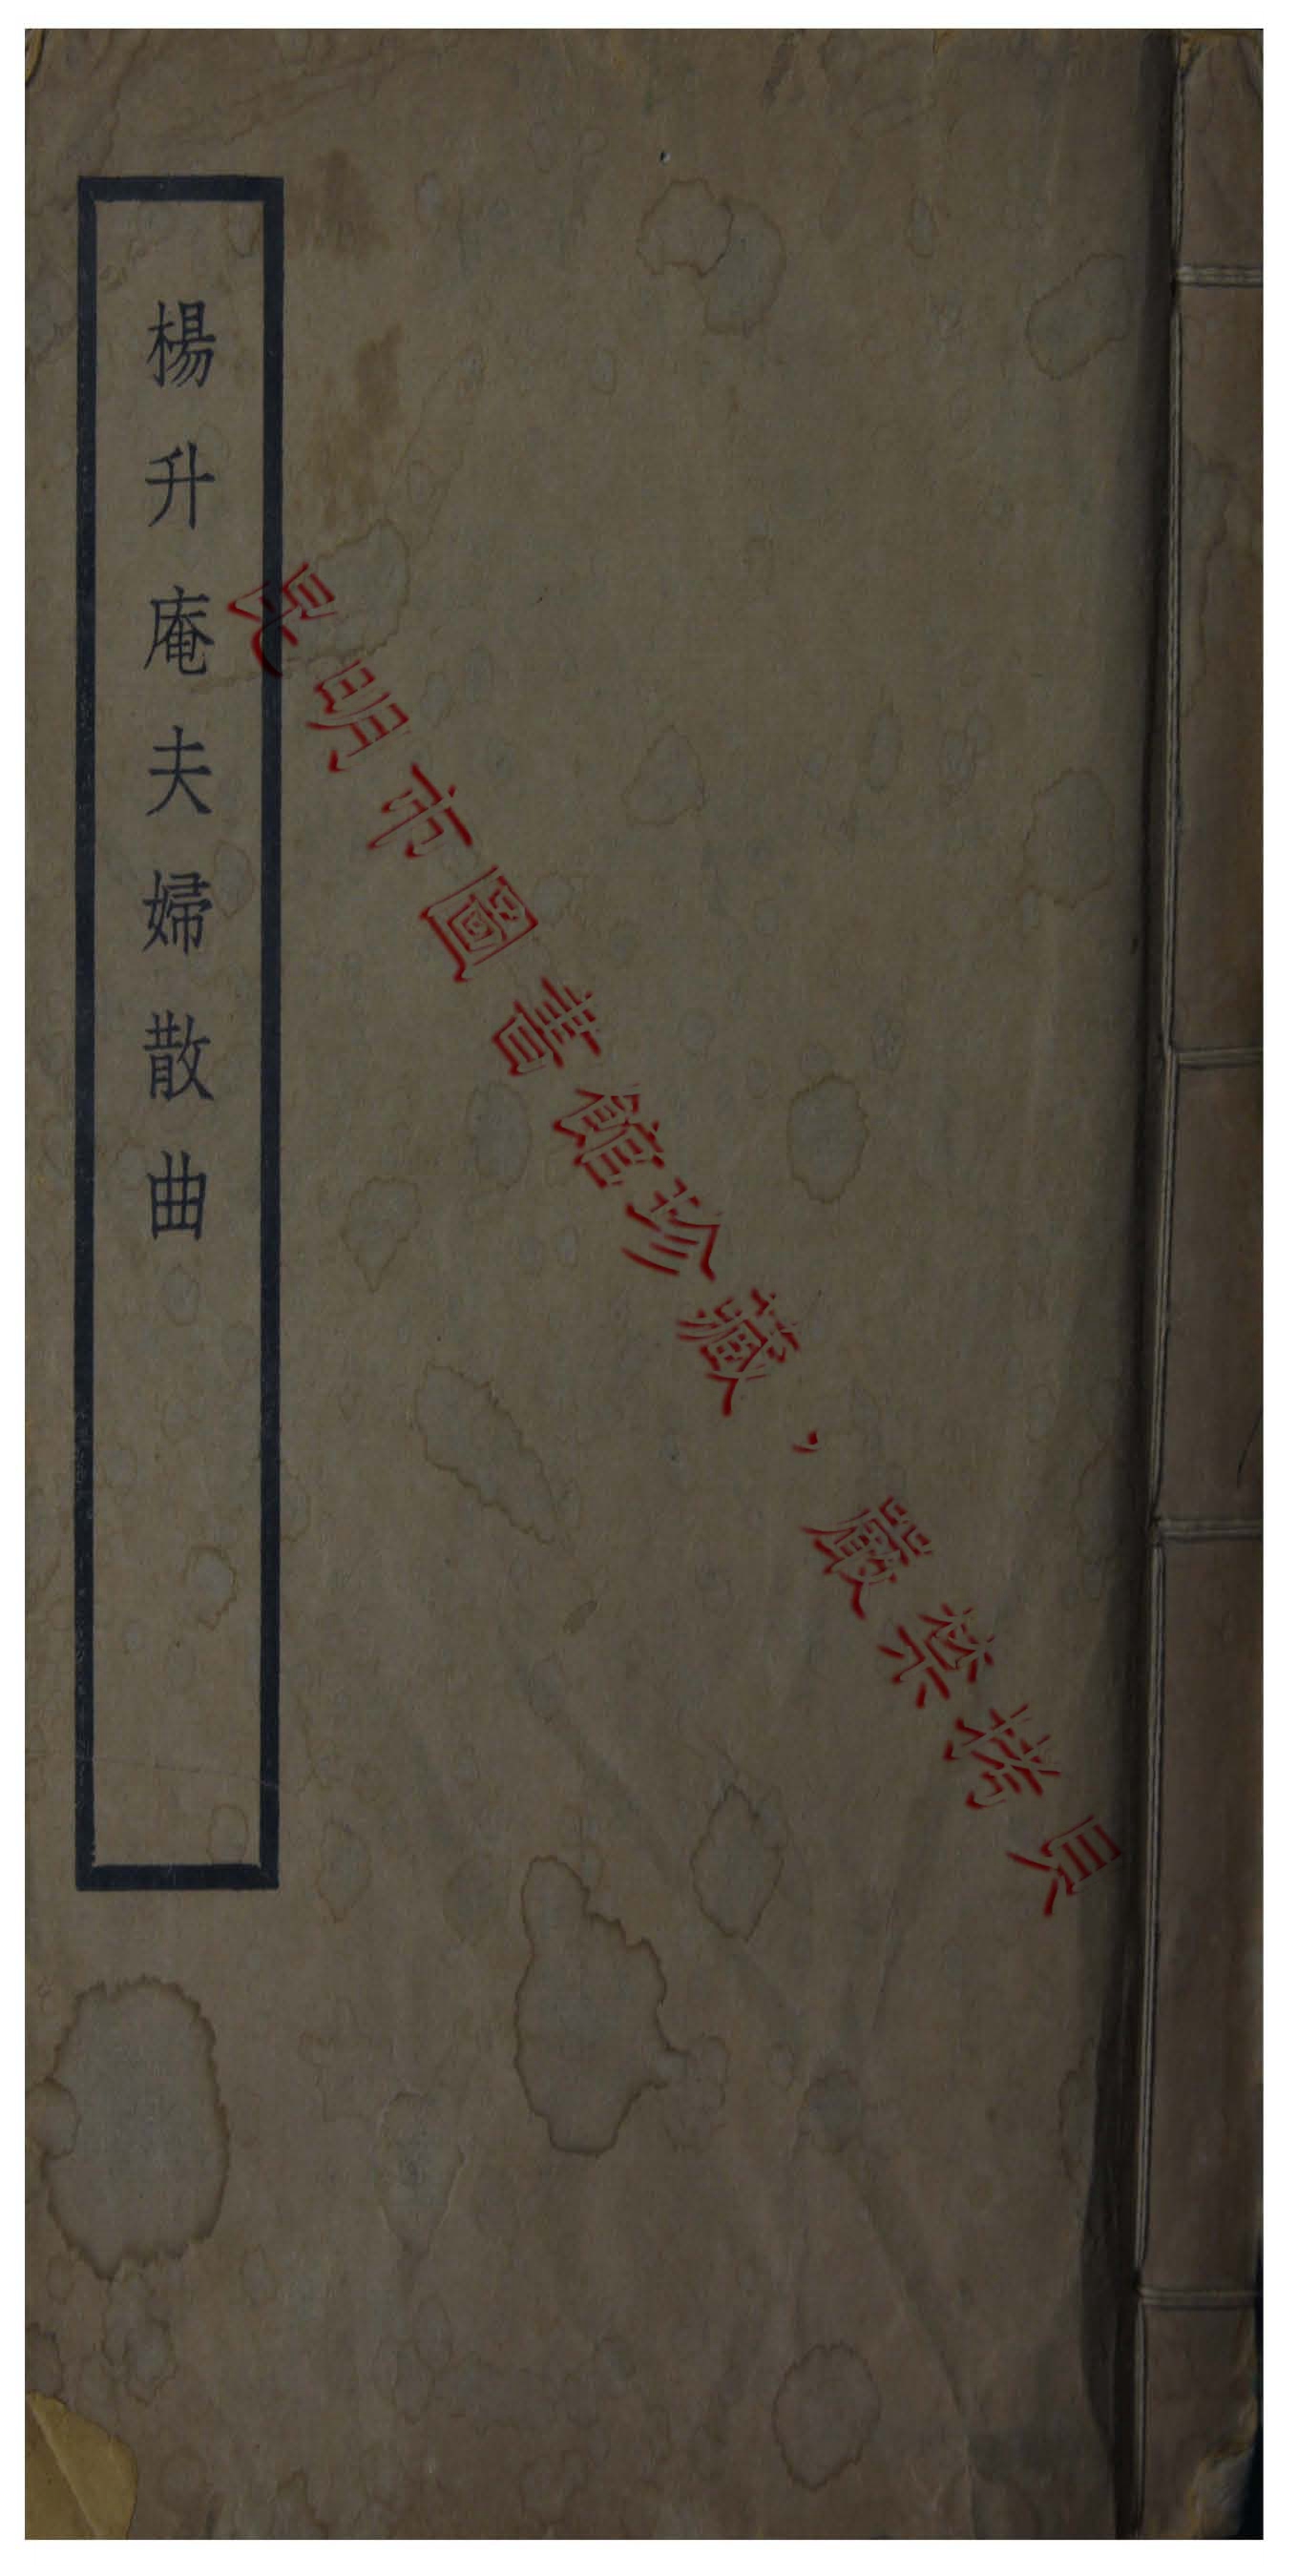 楊升庵夫婦散曲
昆明市圖書館珍藏，嚴禁拷貝